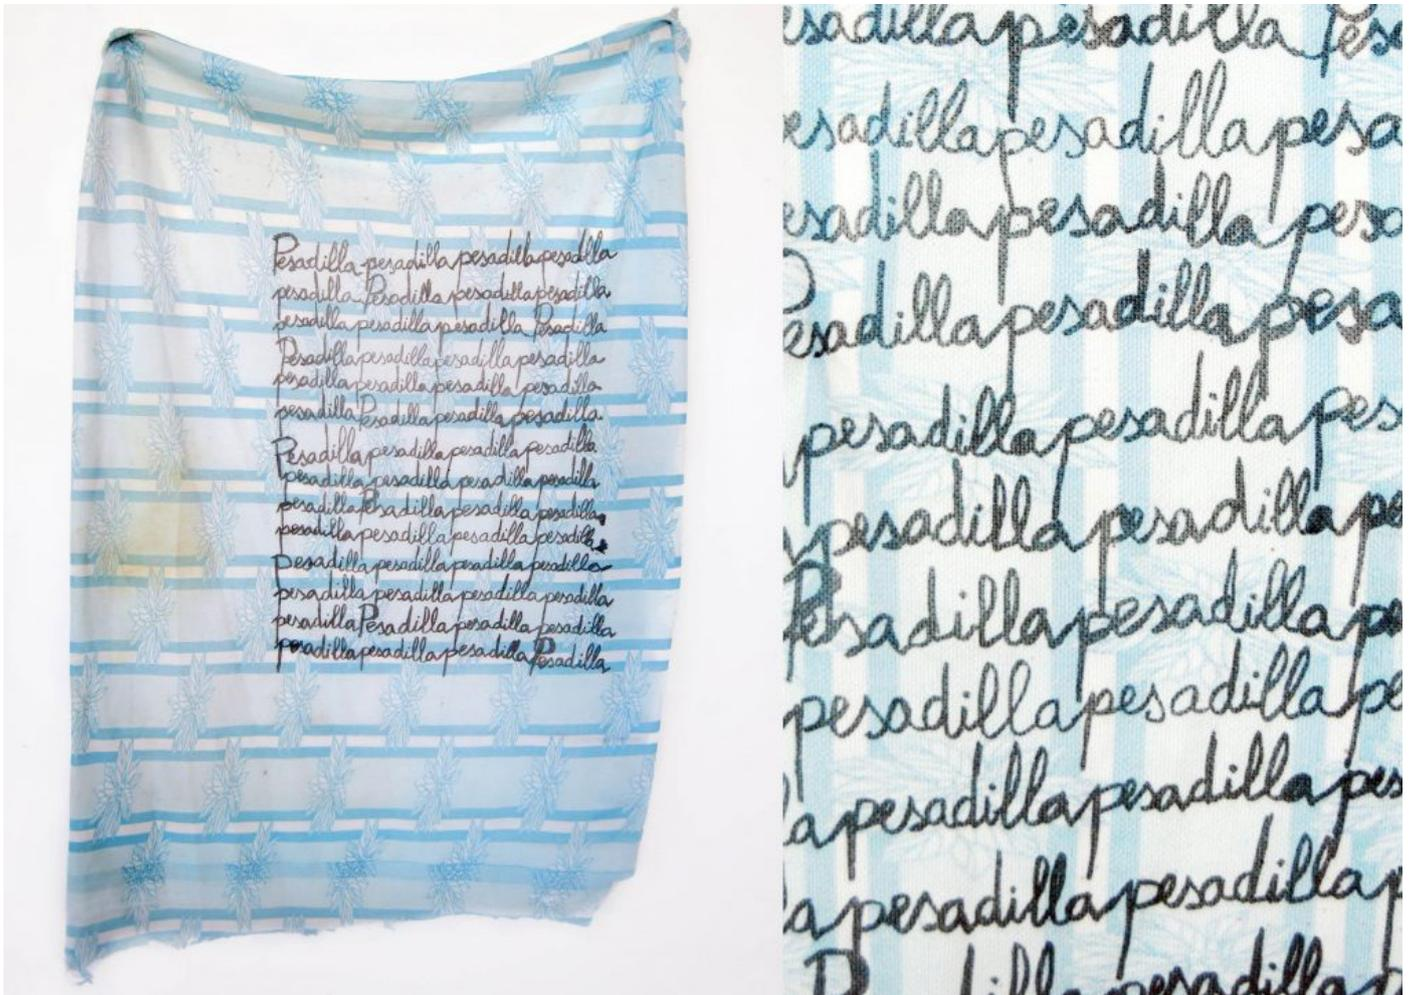 Pesadilla pesadilla pesadilla pesadilla
pesadilla Pesadilla pesadilla pesadilla
pesadilla pesadilla pesadilla Pesadilla
Pesadilla pesadilla pesadilla pesadilla
pesadilla pesadilla pesadilla pesadilla
pesadilla Pesadilla pesadilla pesadilla
Pesadilla pesadilla pesadilla pesadilla
pesadilla pesadilla pesadilla pesadilla
pesadilla Pesadilla pesadilla pesadilla
pesadilla pesadilla pesadilla pesadilla
Pesadilla pesadilla pesadilla pesadilla
pesadilla pesadilla pesadilla pesadilla
pesadilla Pesadilla pesadilla pesadilla
pesadilla pesadilla pesadilla Pesadilla
esadilla pesadilla Pesa
esadilla pesadilla pesa
esadilla pesadilla peso
esadilla pesadilla pesa
pesadilla pesadilla pes
pesadilla pesadilla pe
Pesadilla pesadilla pe
pesadilla pesadilla pe
la pesadilla pesadilla pes
a pesadilla pesadilla p
P dilla pesadilla p